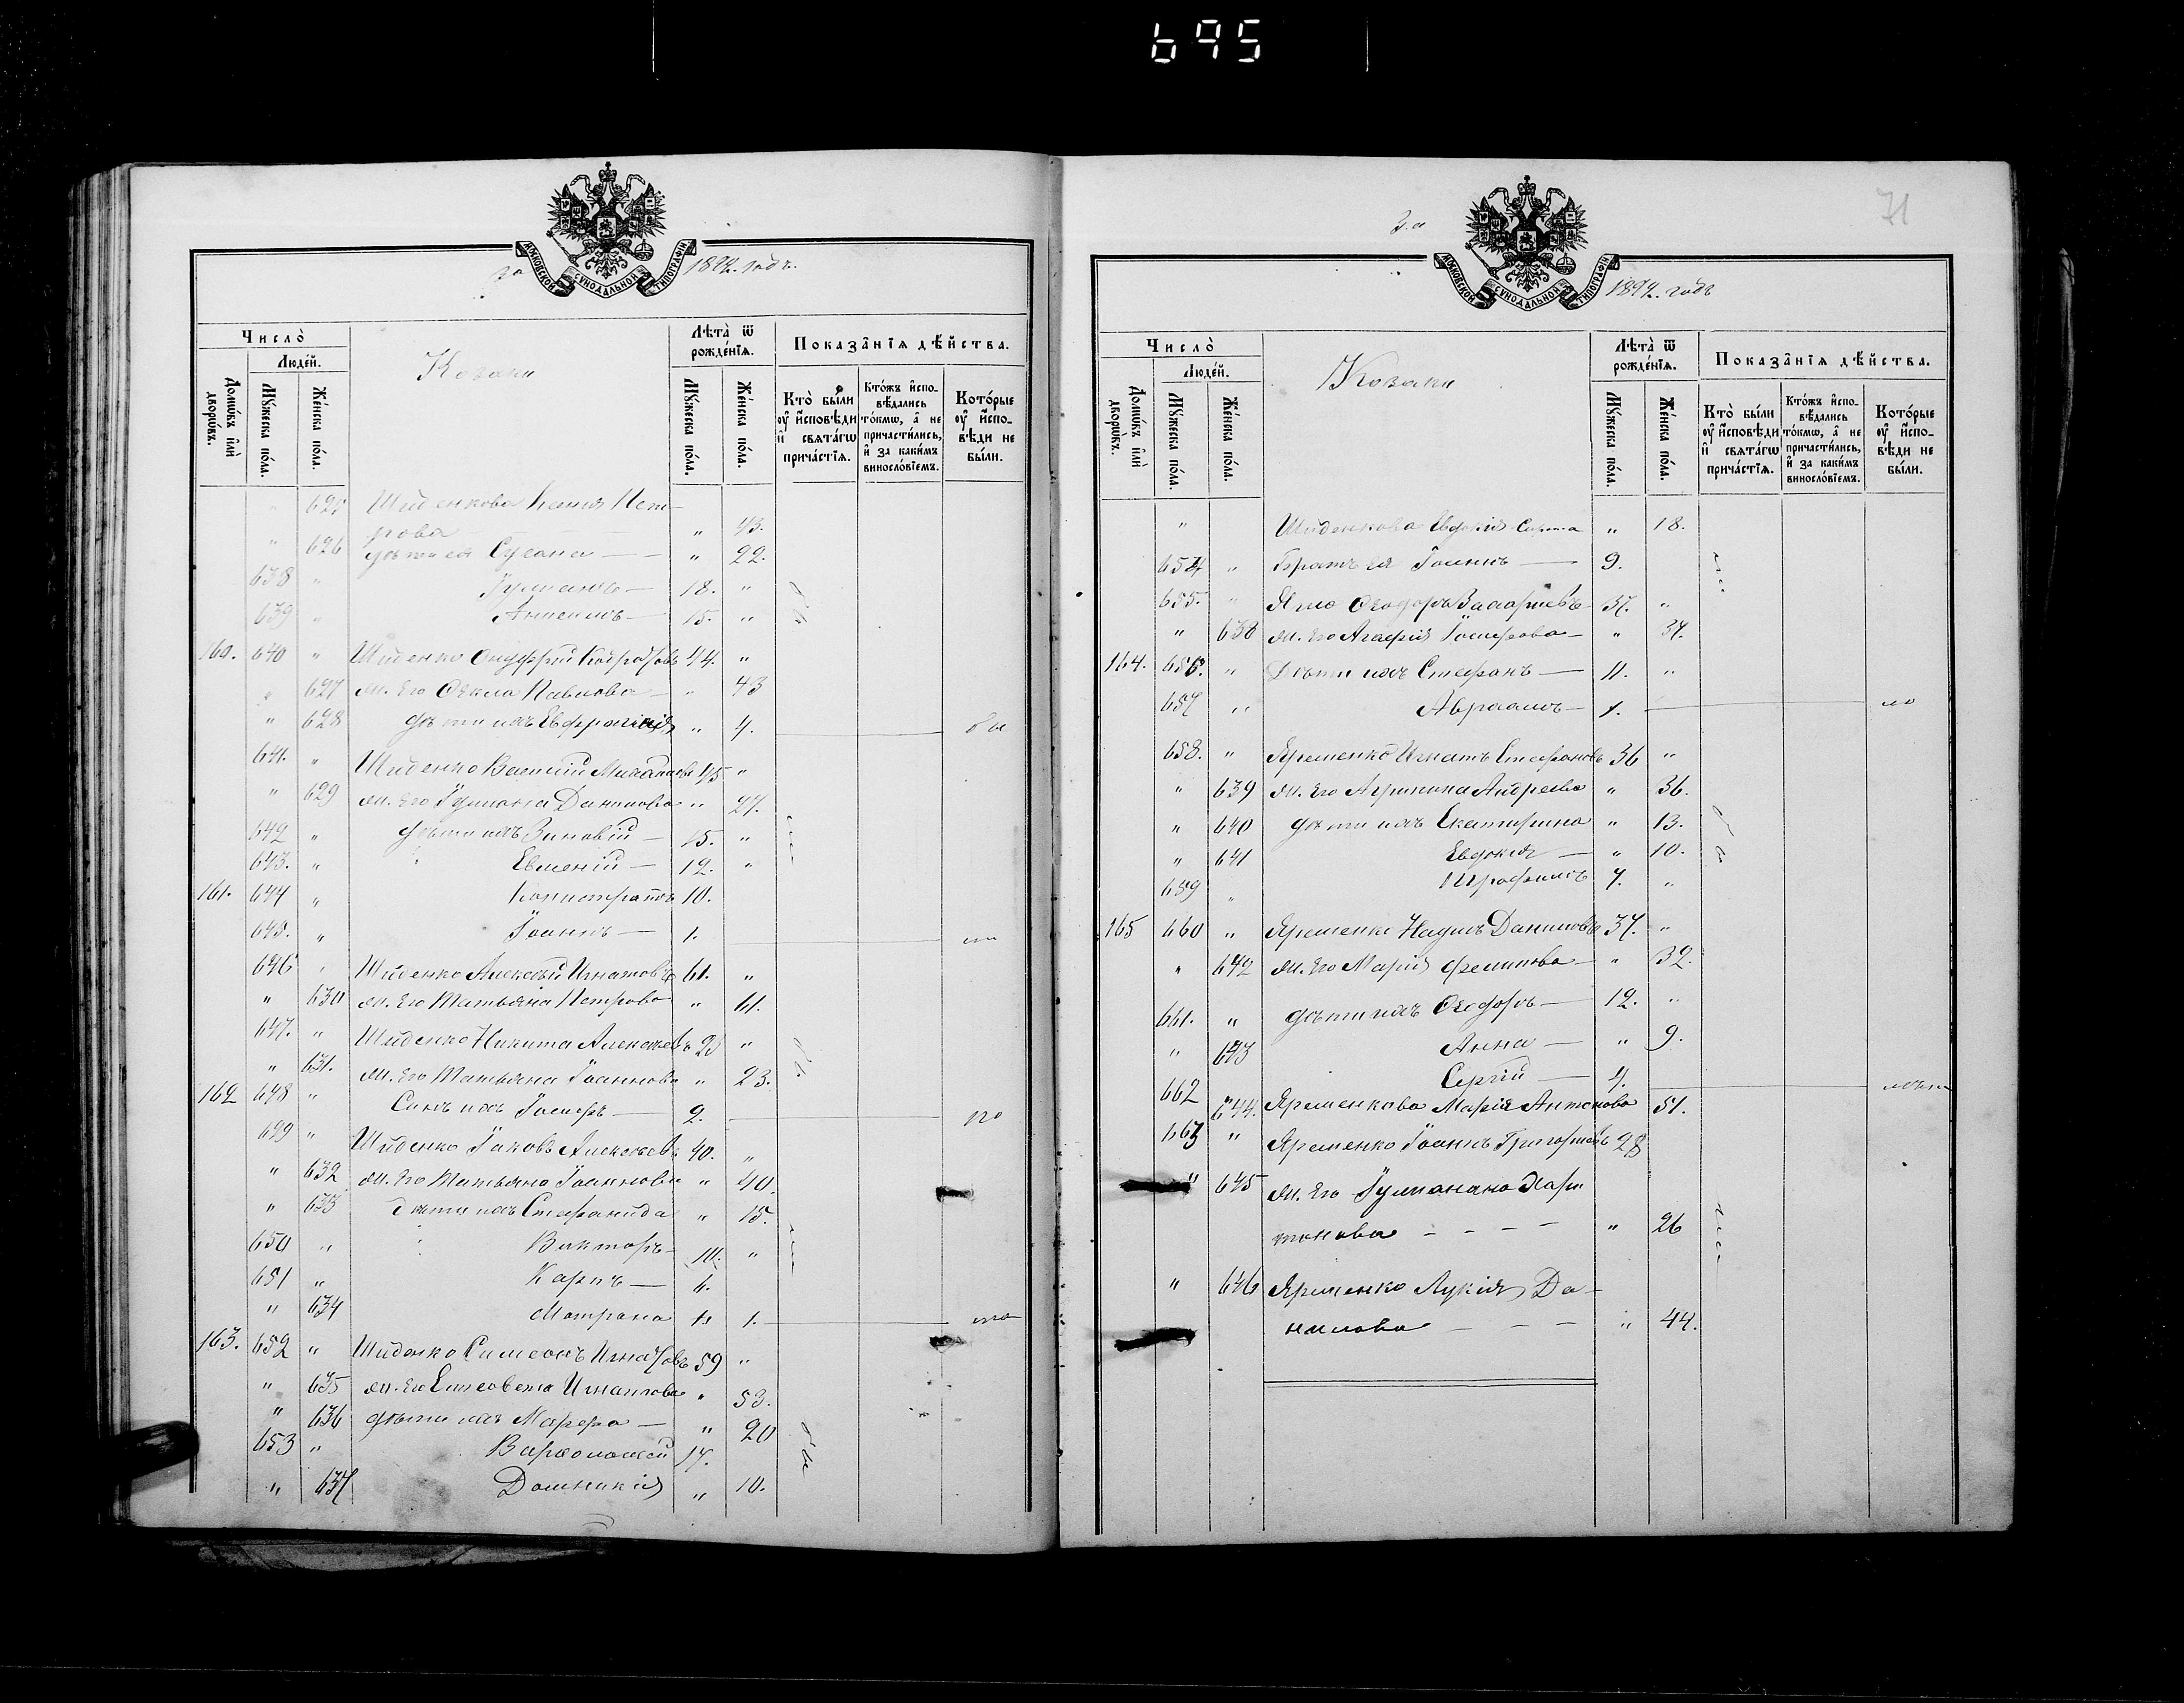 695
за 1892. годъ.
МОСКОВСКОЙ СѴНОДАЛЬНОЙ ТИПОГРАФІИ
Число̀
Люде́й.
Домѡ́въ и҆лѝ дворѡ́въ.
Мꙋ́жеска по́ла.
Же́нска по́ла.
Козаки
Лѣта̀ ѿ рожде́нїѧ.
Мꙋ́жеска по́ла.
Же́нска по́ла.
Показа̑нїѧ дѣ́йства.
Кто̀ бы́ли оу҆ и҆сповѣ́ди и҆ свѧта́гѡ прича́стїѧ.
Кто́жъ и҆спо-вѣ́дались то́кмѡ, а҆ не причасти́лись, и҆ за каки́мъ винословїемъ.
Кото́рые оу҆ и҆спо-вѣ́ди не бы́ли.
" 625 Шиденкова Ксенія Пет-
рова " 43.
" 626 дѣти ея Сусана — " 22.
638 " Іуліанъ — 18. "
639 " Анисимъ — 15. "
160. 640 " Шиденко Онуфрій 44. "
" 627 ж. его Ѳекла Павлова — " 43
" 628 дѣти ихъ Евфросинія " 4.
641. " Шиденко Василій 45 "
" 629 ж. его Іуліана Данилова " 27.
642 " дѣти ихъ Зиновій — 15. "
643. " Евменій — 12. "
161. 644 " Каллистратъ 10.
645. " Іоаннъ — 1.
646 " Шиденко Алексѣй Игнатовъ 61. "
" 630 ж. его Татьяна Петрова " 61.
647. " Шиденко Никита Алексѣевъ 23 "
" 631. ж. его Татьяна Іоаннова " 23.
162 648 " Сынъ ихъ Іосифъ — 2.
649 " Шиденко Іаковъ Алексѣевъ 40. "
" 632 ж. его Татьяна Іоаннова " 40.
" 633 дѣти ихъ Стефанида " 15.
650 " Викторъ — 10. "
651 " Карпъ — 6.
" 634 Матрона 1.
163. 652 " Шиденко Симеонъ Игнатовъ 59 "
" 635 ж. его Елисавета Игнатова " 53.
" 636 дѣти ихъ Марфа — " 20
653 " Варфоломей 17.
" 637 Домникія " 10.
71
за 1892. годъ
МОСКОВСКОЙ СѴНОДАЛЬНОЙ ТИПОГРАФІИ
Число̀
Люде́й.
Домѡ́въ и҆лѝ дворѡ́въ.
Мꙋ́жеска по́ла.
Же́нска по́ла.
Козаки
Лѣта̀ ѿ рожде́нїѧ.
Мꙋ́жеска по́ла.
Же́нска по́ла.
Показа̑нїѧ дѣ́йства.
Кто̀ бы́ли оу҆ и҆сповѣ́ди и҆ свѧта́гѡ прича́стїѧ.
Кто́жъ и҆спо-вѣ́дались то́кмѡ, а҆ не причасти́лись, и҆ за каки́мъ винословїемъ.
Кото́рые оу҆ и҆спо-вѣ́ди не бы́ли.
" Шиденкова Евдокія Сирота " 18.
654 " Братъ ея Іоаннъ — 9.
655. " Ѳеодоръ Захаріевъ 37. "
" 638 ж. его Агафія Іосифова — " 37.
164. 656. " Дѣти ихъ Стефанъ — 11. "
657 " Авраамъ — 1.
658. " Яременко Игнатъ Стефановъ 36 "
" 639 ж. его Агрипина Андреева " 36.
" 640 дѣти ихъ Екатирина " 13.
" 641 Евдокія — " 10.
659 " Трофимъ 7. "
165 660 " Яременко Наумъ Даниловъ 37. "
" 642 ж. его Марія Филипова — " 32.
661. " дѣти ихъ Ѳеодоръ — 12. "
" 643 Анна — " 9.
662 Сергій — 4.
" 644. Яременкова Марія Антонова 51.
663 " Яременко Іоаннъ Григоріевъ 28
" 645 ж. его Іуліанана Хари
тонова — — — — " 26
" 646 Яременко Лукія Да-
нилова — — — " 44.